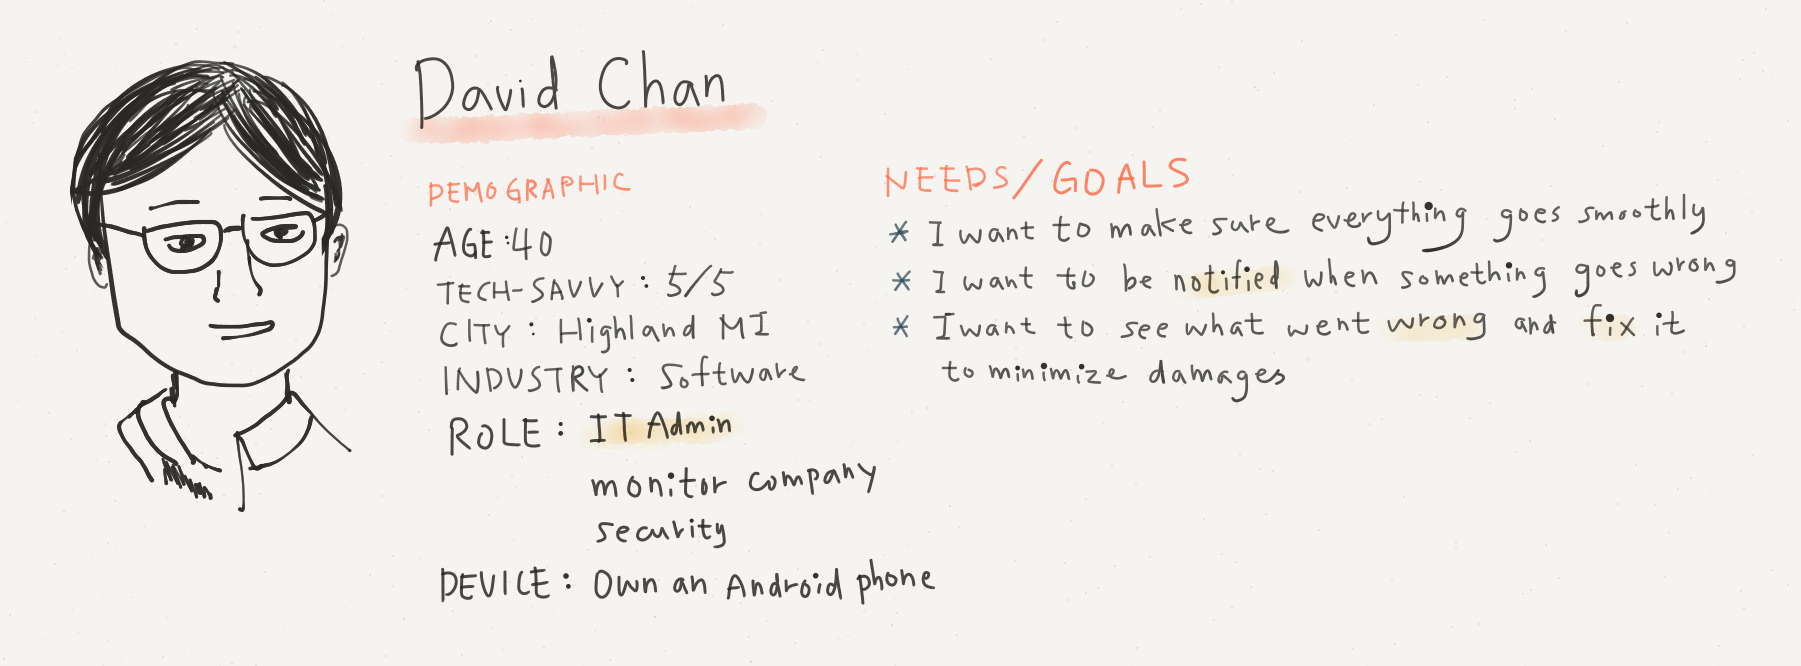 David Chan
DEMOGRAPHIC
AGE :40
TECH-SAVVY : 5/5
CITY : Highland MI
INDUSTRY : Software
ROLE : IT Admin
monitor company
security
DEVICE : Own an Android phone
NEEDS/GOALS
* I want to make sure everything goes smoothly
* I want to be notified when something goes wrong
* I want to see what went wrong and fix it
to minimize damages